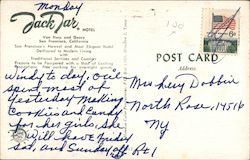 Monday
Jack Tar
HOTEL
Van Ness and Geary
San Francisco, California
San Francisco's Newest and Most Elegant Hotel
Dedicated to Modern Living
with
Traditional Services and Comfort
POST CARD
Address
6¢
Windy today, oil
spent most of
Yesterday Making
Cookies and Candy
for her girls, she
will have Friday
Sat, and Sunday off
Mrs Lucy Dobbin
North Rose, 14516
Ny
Rt 1